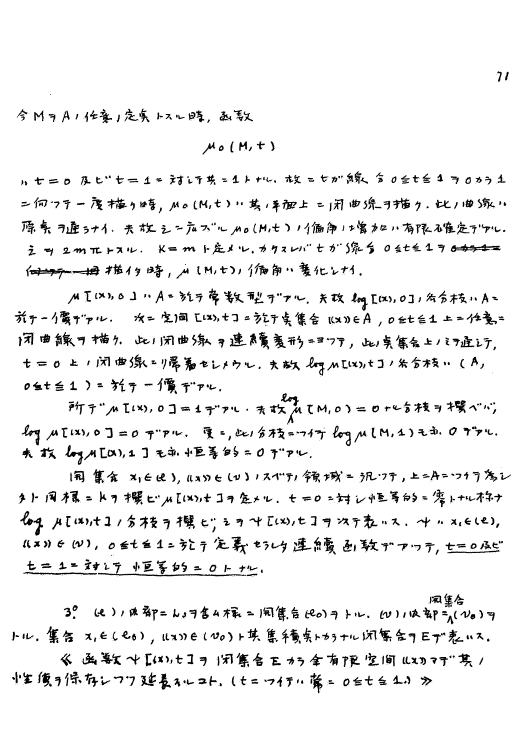 71
今 M ヲ A ノ 任意ノ定点トスル時, 函数
μ₀(M, t)
ハ t = 0 及ビ t = 1 ニ対シテ共ニ 1 トナル. 故ニ t ガ線分 0 ≦ t ≦ 1 ヲ 0 カラ 1
ニ向ツテ一度描ク時, μ₀(M, t) ハ其ノ平面上ニ閉曲線ヲ描ク. 此ノ曲線ハ
原点ヲ通ラナイ. 夫故之ニ応ズル μ₀(M, t) ノ偏角ノ増加ハ有限確定デアル.
之ヲ 2mπ トスル. K = m ト定メル. カクスレバ t ガ線分 0 ≦ t ≦ 1 ヲ
描イタ時, μ(M, t) ノ偏角ハ変化シナイ.
μ[(x), 0] ハ A ニ於テ常数型デアル. 夫故 log [(x), 0] ノ各分枝ハ A ニ
於テ一價デアル. 次ニ空間 [(x), t] ニ於テ点集合 (x) ∈ A, 0 ≦ t ≦ 1 上ニ任意ニ
閉曲線ヲ描ク. 此ノ閉曲線ヲ連續変形ニヨツテ, 此ノ点集合上ノミヲ通シテ,
t = 0 上ノ閉曲線ニ帰着セシメウル. 夫故 log μ[(x), t] ノ各分枝ハ (A,
0 ≦ t ≦ 1) ニ於テ一價デアル.
所デ μ[(x), 0] = 1 デアル. 夫故 log μ(M, 0) = 0 ナル分枝ヲ撰ベバ,
log μ[(x), 0] = 0 デアル. 更ニ, 此ノ分枝ニツイテ log μ(M, 1) モ亦 0 デアル.
夫故 log μ[(x), 1] モ亦恒等的ニ 0 デアル.
閉集合 x₁ ∈ (e), ((x)) ∈ (v) ノスベテノ領域ニ沉ツテ, 上ニ A ニツイテ為シ
タト同様ニ K ヲ撰ビ μ[(x), t] ヲ定メル. t = 0 ニ対シ恒等的ニ零トナル様ナ
log μ[(x), t] ノ分枝ヲ撰ビ, 之ヲ ψ[(x), t] ヲ以テ表ハス. ψ ハ x₁ ∈ (e),
((x)) ∈ (v), 0 ≦ t ≦ 1 ニ於テ定義セラレタ連續函数デアツテ, t = 0 及ビ
t = 1 ニ対シテ恒等的ニ 0 トナル.
3° (e) ノ内部ニ L₀ ヲ含ム様ニ閉集合 (e₀) ヲトル. (v) ノ内部ニ閉集合 (v₀) ヲ
トル. 集合 x₁ ∈ (e₀), ((x)) ∈ (v₀) ト其集積点トカラナル閉集合ヲ E デ表ハス.
《 函数 ψ[(x), t] ヲ閉集合 E カラ全有限空間 ((x)) マデ其ノ
性質ヲ保存シツツ延長スルコト. (t ニツイテハ常ニ 0 ≦ t ≦ 1.) 》